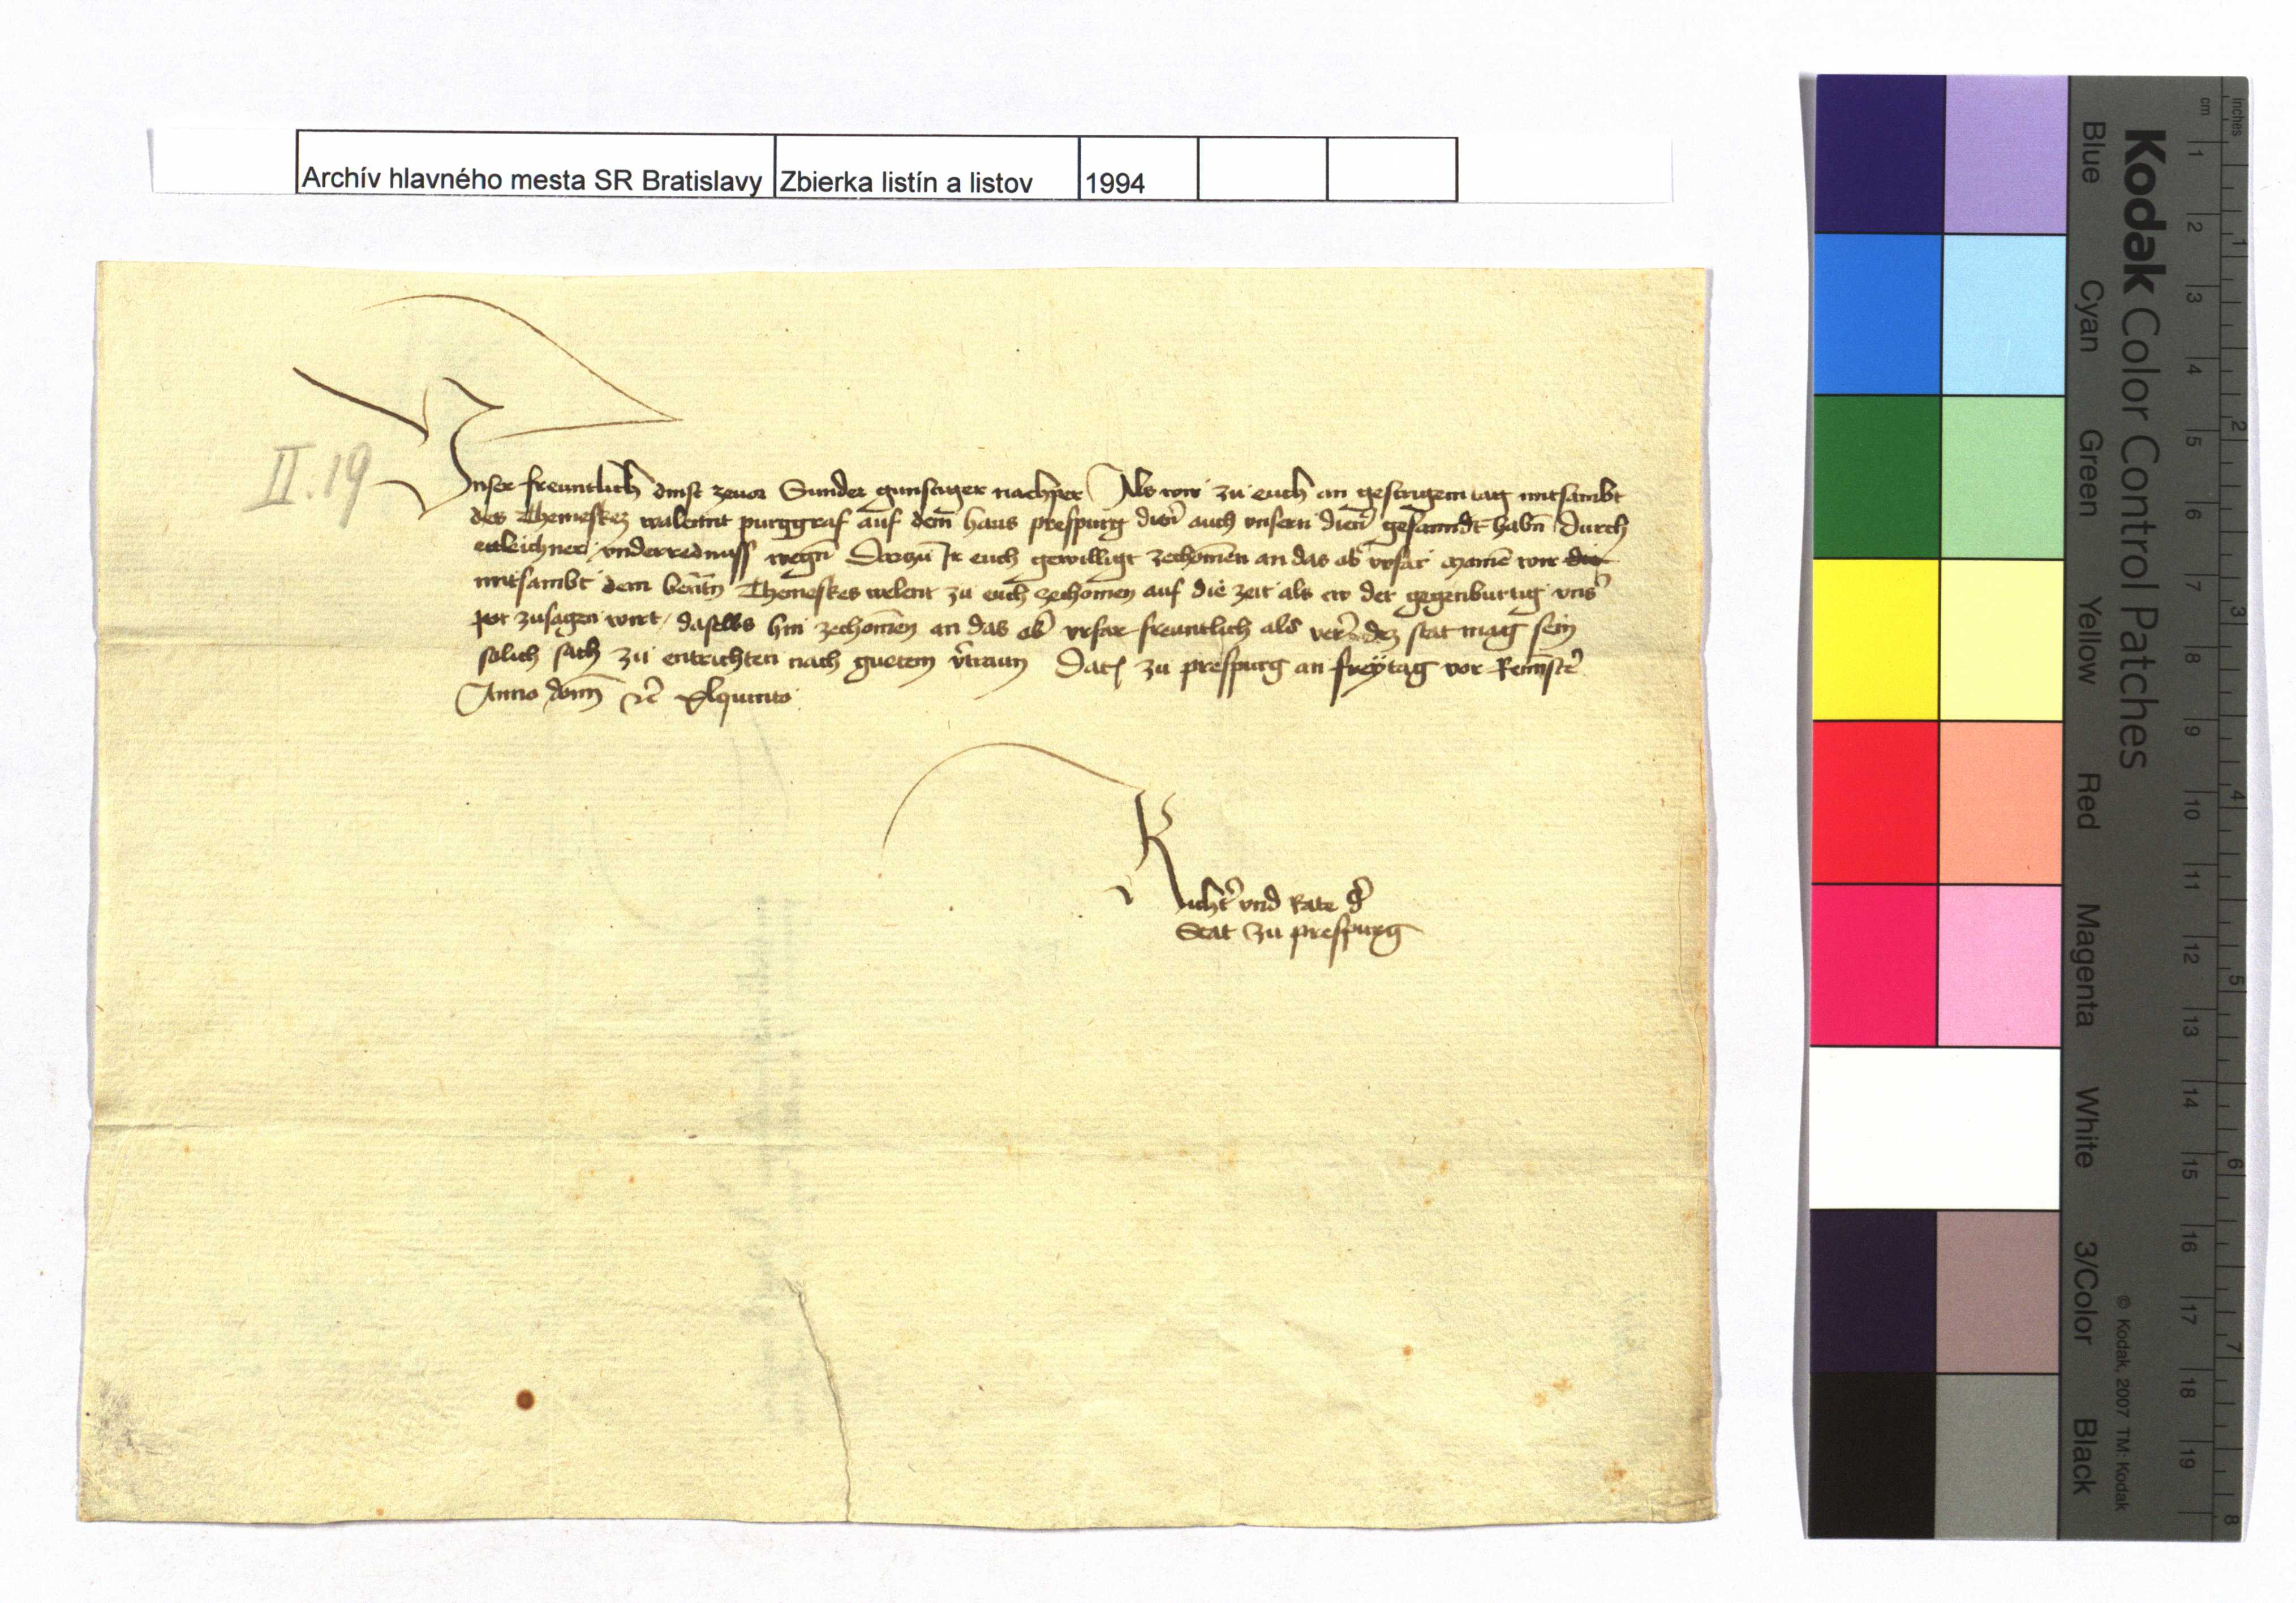 Archív hlavného mesta SR Bratislavy Zbierka listín a listov 1994
II. 19
Vnser freuntlich dinst zeuor Sunder gunstiger nachper Als wir zu euch an gestrigem tag mitsambt
des Themeskez walennt purggraf auf dem haus prespurg dien̄ auch vnsern dien̄ gesanndt habn̄ durch
etleichner vnderrednuss wegn̄ Dorzu Ir euch gewilligt zechomen an das ob vrfar wir die
mitsambt dem Themeskes welent zu euch zechomen auf die zeit als ew der gegenburtig vns̄
pot zusagen wirt / daselbs hin zechomen an das ob vrfar freuntlich als der stat mag sein
solich sach zu entrichten nach guetem Dat zu prespurg an freÿtag vor
Anno dom̄ xlquinto
Richt̄ vnd Rate d̄
Stat zu prespurg
Kodak Color Control Patches
Blue Cyan Green Yellow Red Magenta White 3/Color Black
© Kodak, 2007 TM: Kodak
cm 1 2 3 4 5 6 7 8 9 10 11 12 13 14 15 16 17 18 19
inches 1 2 3 4 5 6 7 8